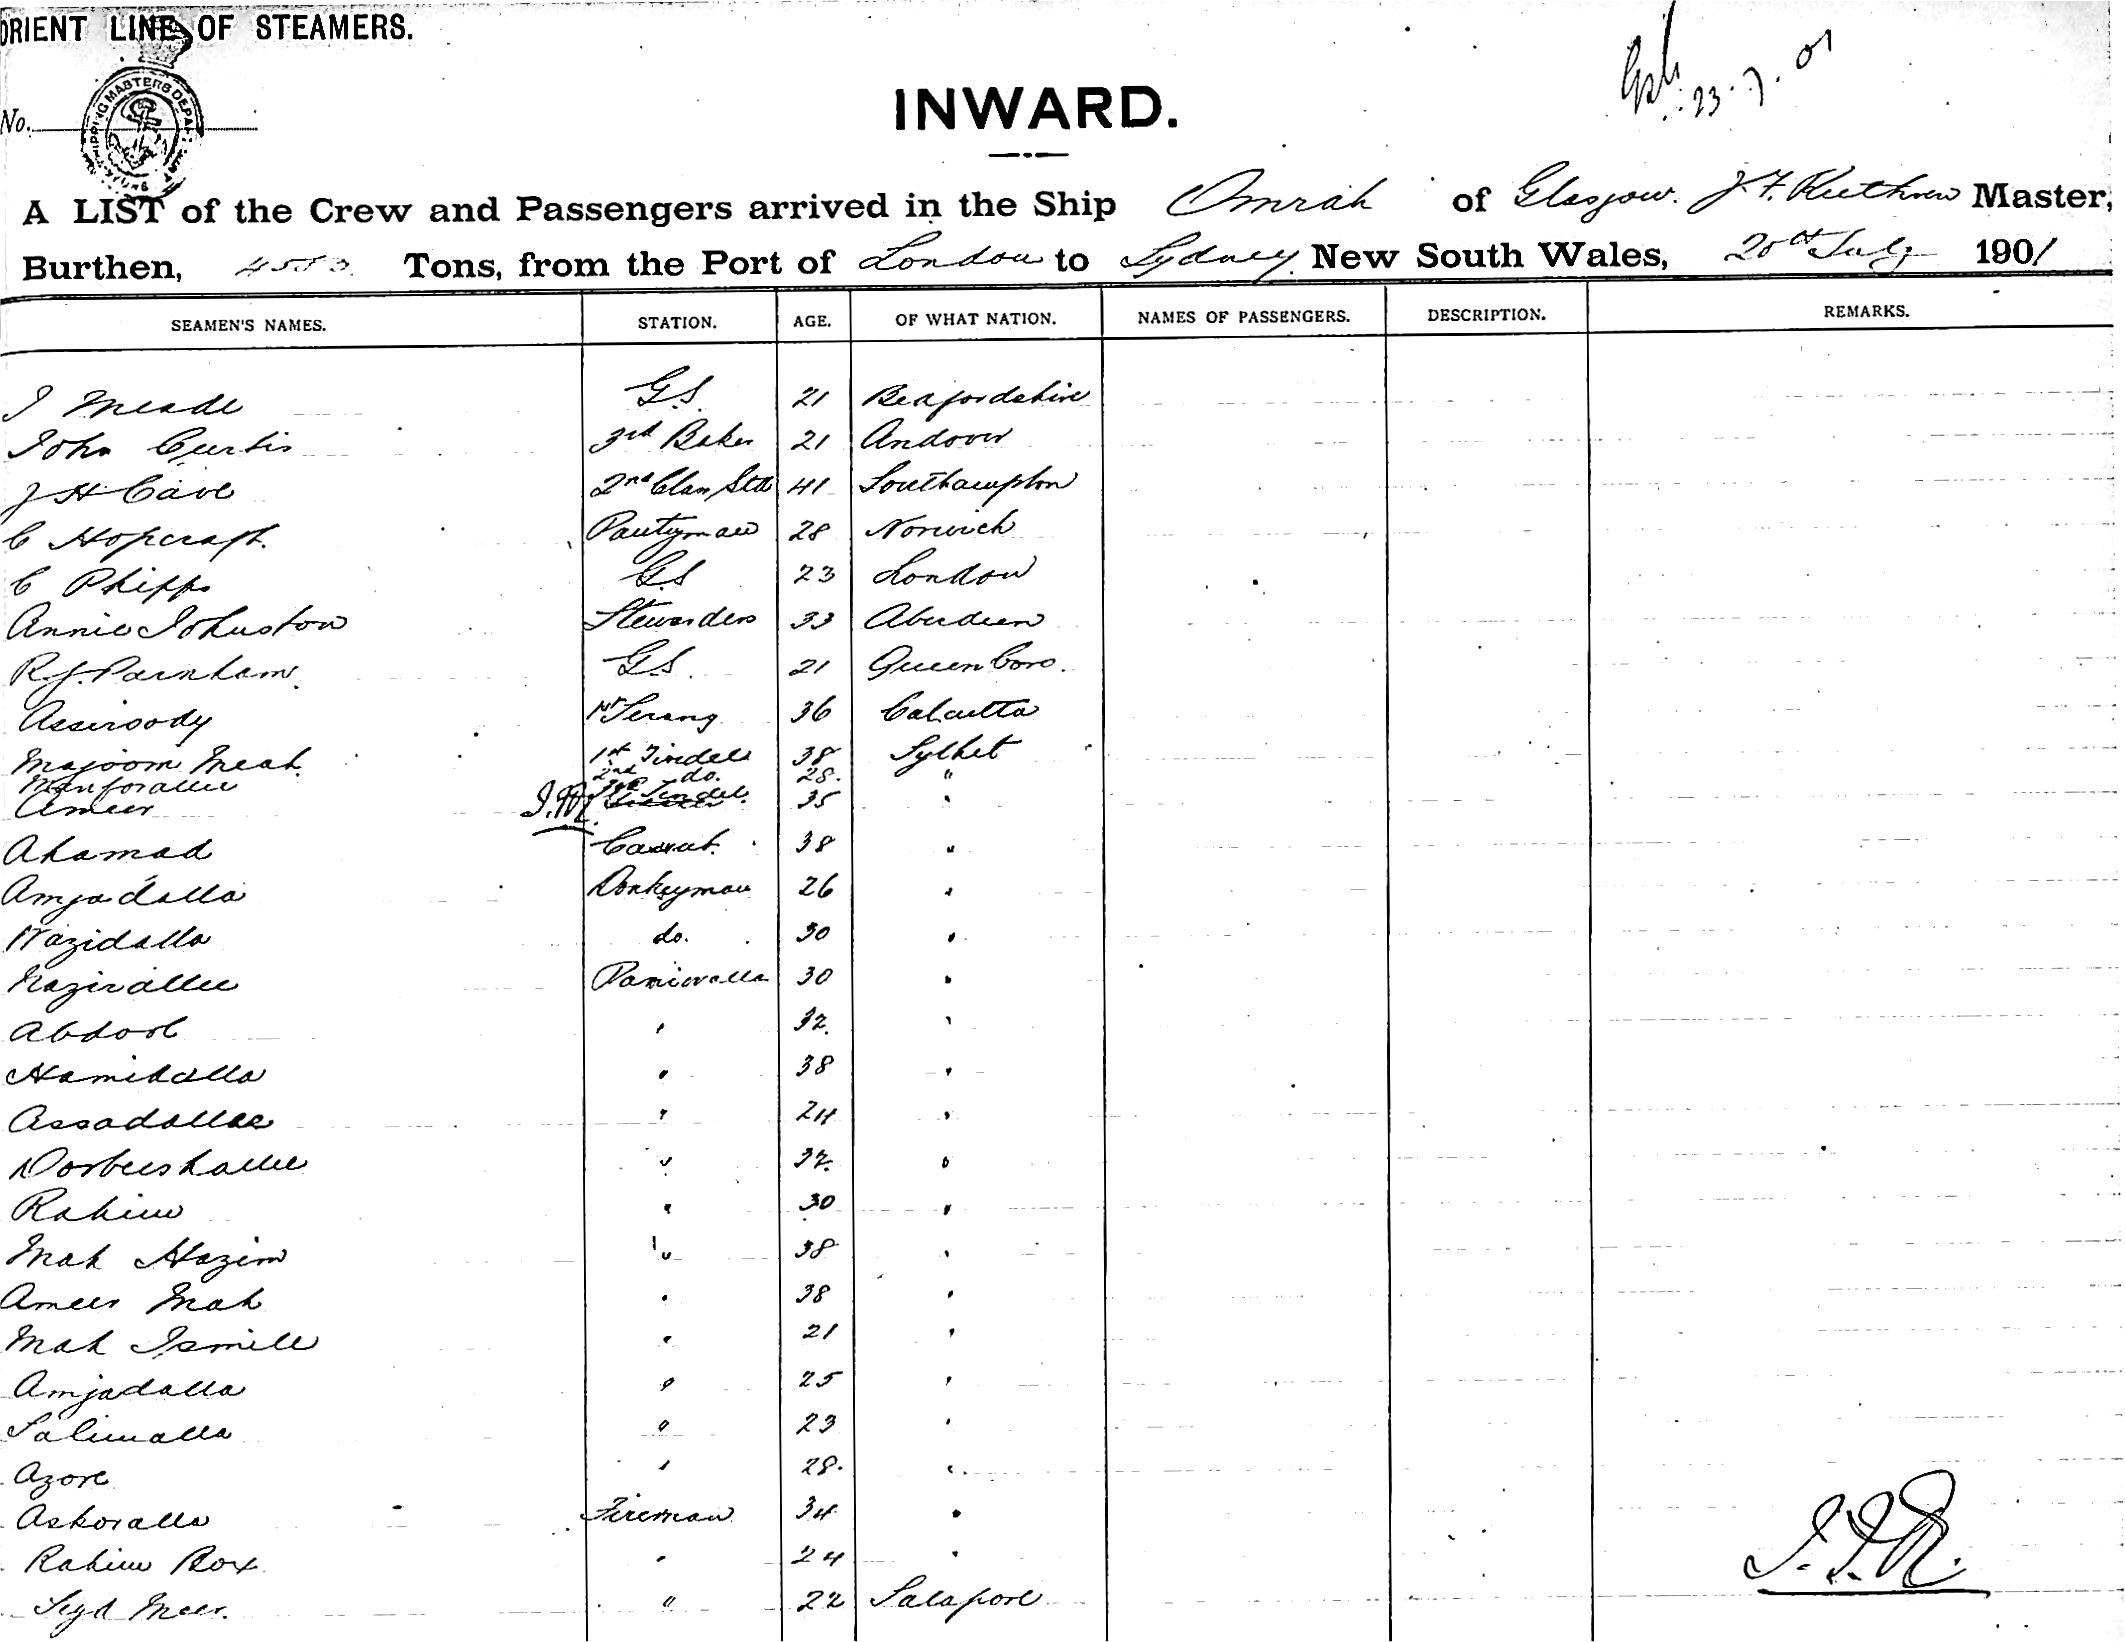 ORIENT LINE OF STEAMERS.
23.7.01
No.
SHIPPING MASTERS DEPARTMENT
INWARD.
A LIST of the Crew and Passengers arrived in the Ship Omrah of Glasgow. J. F. Ruthven Master,
Burthen, Tons, from the Port of London to Sydney. New South Wales, 20th July 1901
SEAMEN'S NAMES. STATION. AGE. OF WHAT NATION. NAMES OF PASSENGERS. DESCRIPTION. REMARKS.
J Meade G.S. 21 Beafordshire
John Curtis 3rd Baker 21 Andover
J H Cave 2nd Class Std 41 Southampton
C Hopcraft. Pantryman 28 Norwich
C Phipps G.S 23 London
Annie Johnston Stewardess 33 Aberdeen
R J. Parnham. G.S. 21 Queenboro.
Assiroody 1st Serang 36 Calcutta
Majoom Meah. 1st Tindel 38 Sylhet
Munforallee 2nd do. 28. "
Ameer 3rd Tindel. 35 "
Ahamad Cassab. 38 "
Amjadalla Donkeyman 26 "
Wazidalla do. 30 "
Nazirallee Paniwalla 30 "
Abdool " 32. "
Hamidalla " 38 "
Assadallee " 24 "
Dorbeshallee " 32. "
Rahim " 30 "
Mah Hazim " 38 "
Ameer Mah " 38 "
Mah Ismill " 21 "
Amjadalla " 25 "
Salimalla " 23 "
Azore " 28. "
Askoralla Fireman 34 "
Rahim Box " 24 "
Syd Meer. " 22 Salapore
J.F.R.